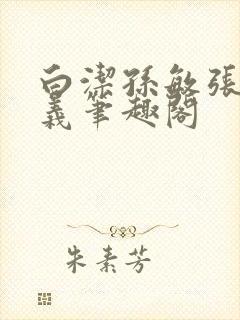 白潔孫敏張
義筆趣閣
朱素芳